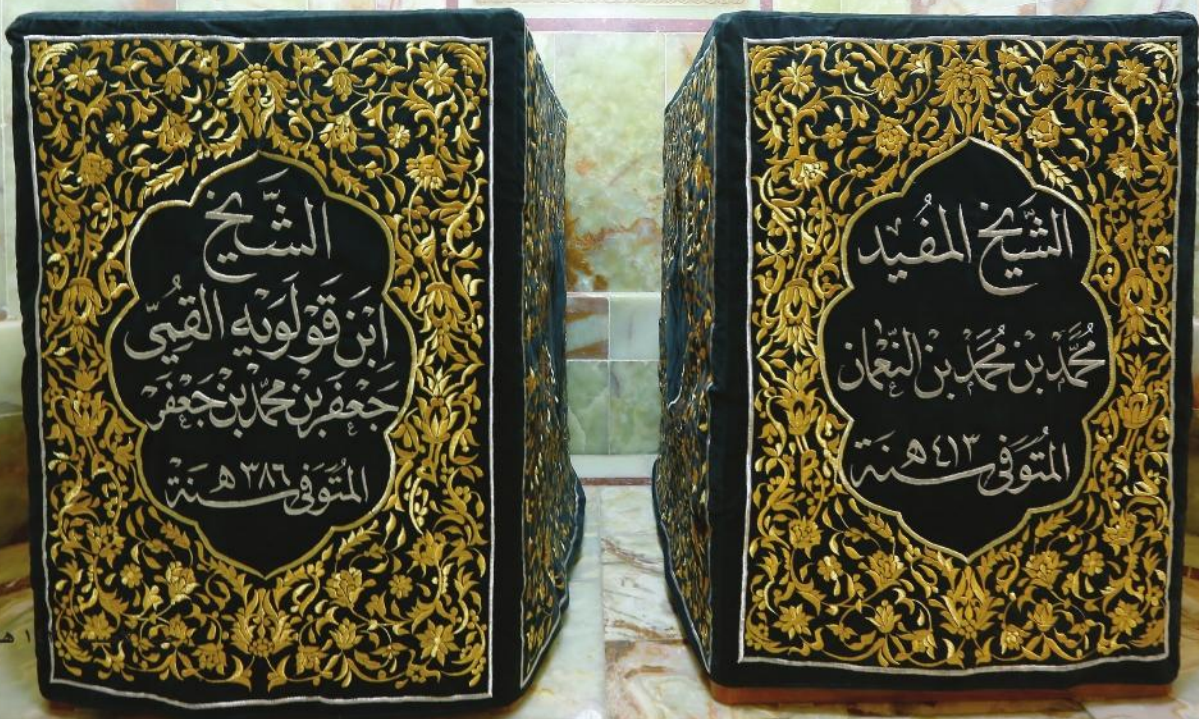 الشَّيْخ المُفِيد
مُحَمَّد بن مُحَمَّد بن النُّعْمَان
المُتَوَفَّى سَنَة ٤١٣ هـ
الشَّيْخ
ابْن قَوْلَوَيْه القُمِّي
جَعْفَر بن مُحَمَّد بن جَعْفَر
المُتَوَفَّى سَنَة ٣٨٦ هـ